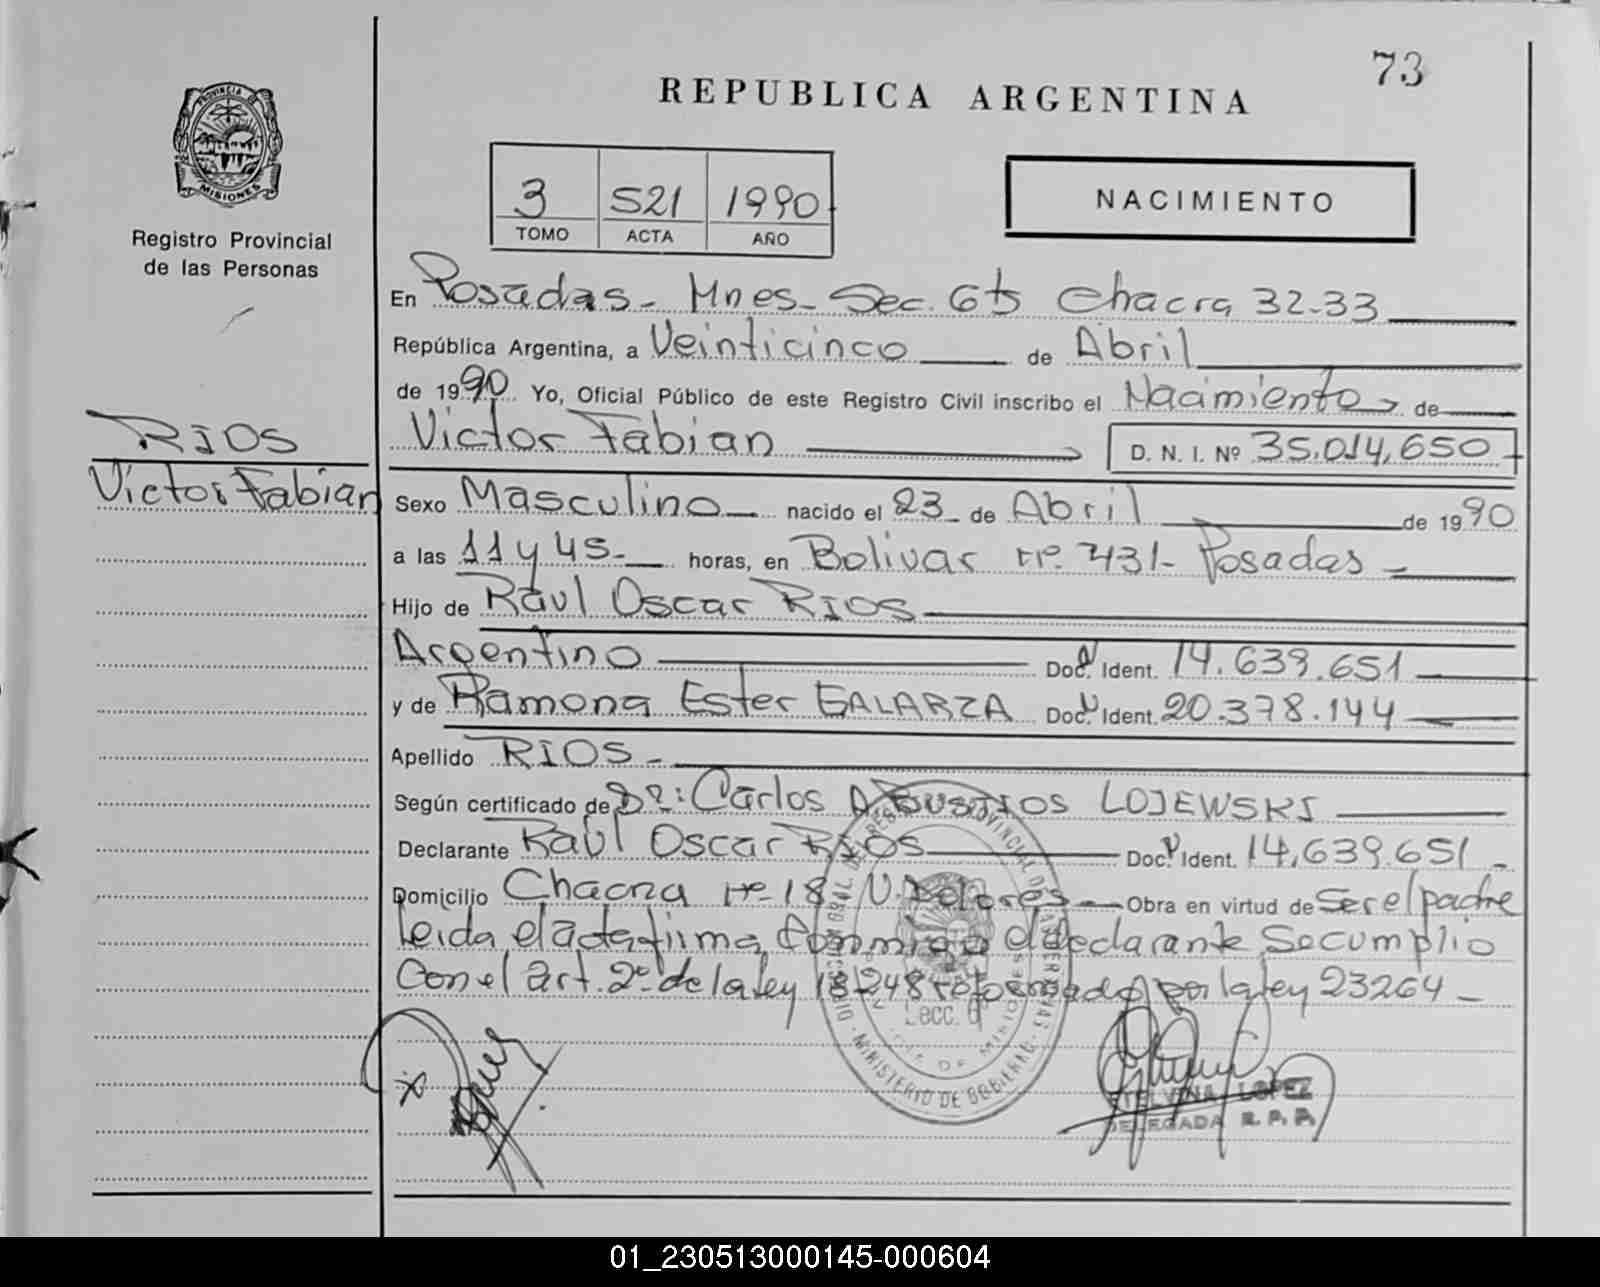 73
REPUBLICA ARGENTINA
PROVINCIA DE
MISIONES
Registro Provincial
de las Personas
3 521 1990
TOMO ACTA AÑO
NACIMIENTO
En Posadas - Mnes - Sec. 6ts Chacra 32-33
República Argentina, a Veinticinco de Abril
de 1990 Yo, Oficial Público de este Registro Civil inscribo el Nacimiento de
Victor Fabian D. N. I. Nº 35.014,650
RIOS
Victor Fabian
Sexo Masculino nacido el 23 de Abril de 1990
a las 11 y 45 - horas, en Bolivar nº. 431 - Posadas -
Hijo de Raul Oscar RIOS
Argentino Doc. Ident. 14.639.651
y de Ramona Ester GALARZA Doc. Ident. 20.378.144
Apellido RIOS -
Según certificado de Dr: Carlos A BUSTIOS LOJEWSKI
Declarante Raul Oscar RIOS Doc. Ident. 14,639.651 -
Domicilio Chacra nº 18 V. Dolores - Obra en virtud de Ser el padre
Leida el acta firma Conmigo el declarante Se cumplio
Con el art. 2º de la ley 18248 reformado por la ley 23264 -
Secc. 6
MINISTERIO DE GOBIERNO
ETELVINA LOPEZ
DELEGADA R. P. P.
01_230513000145-000604